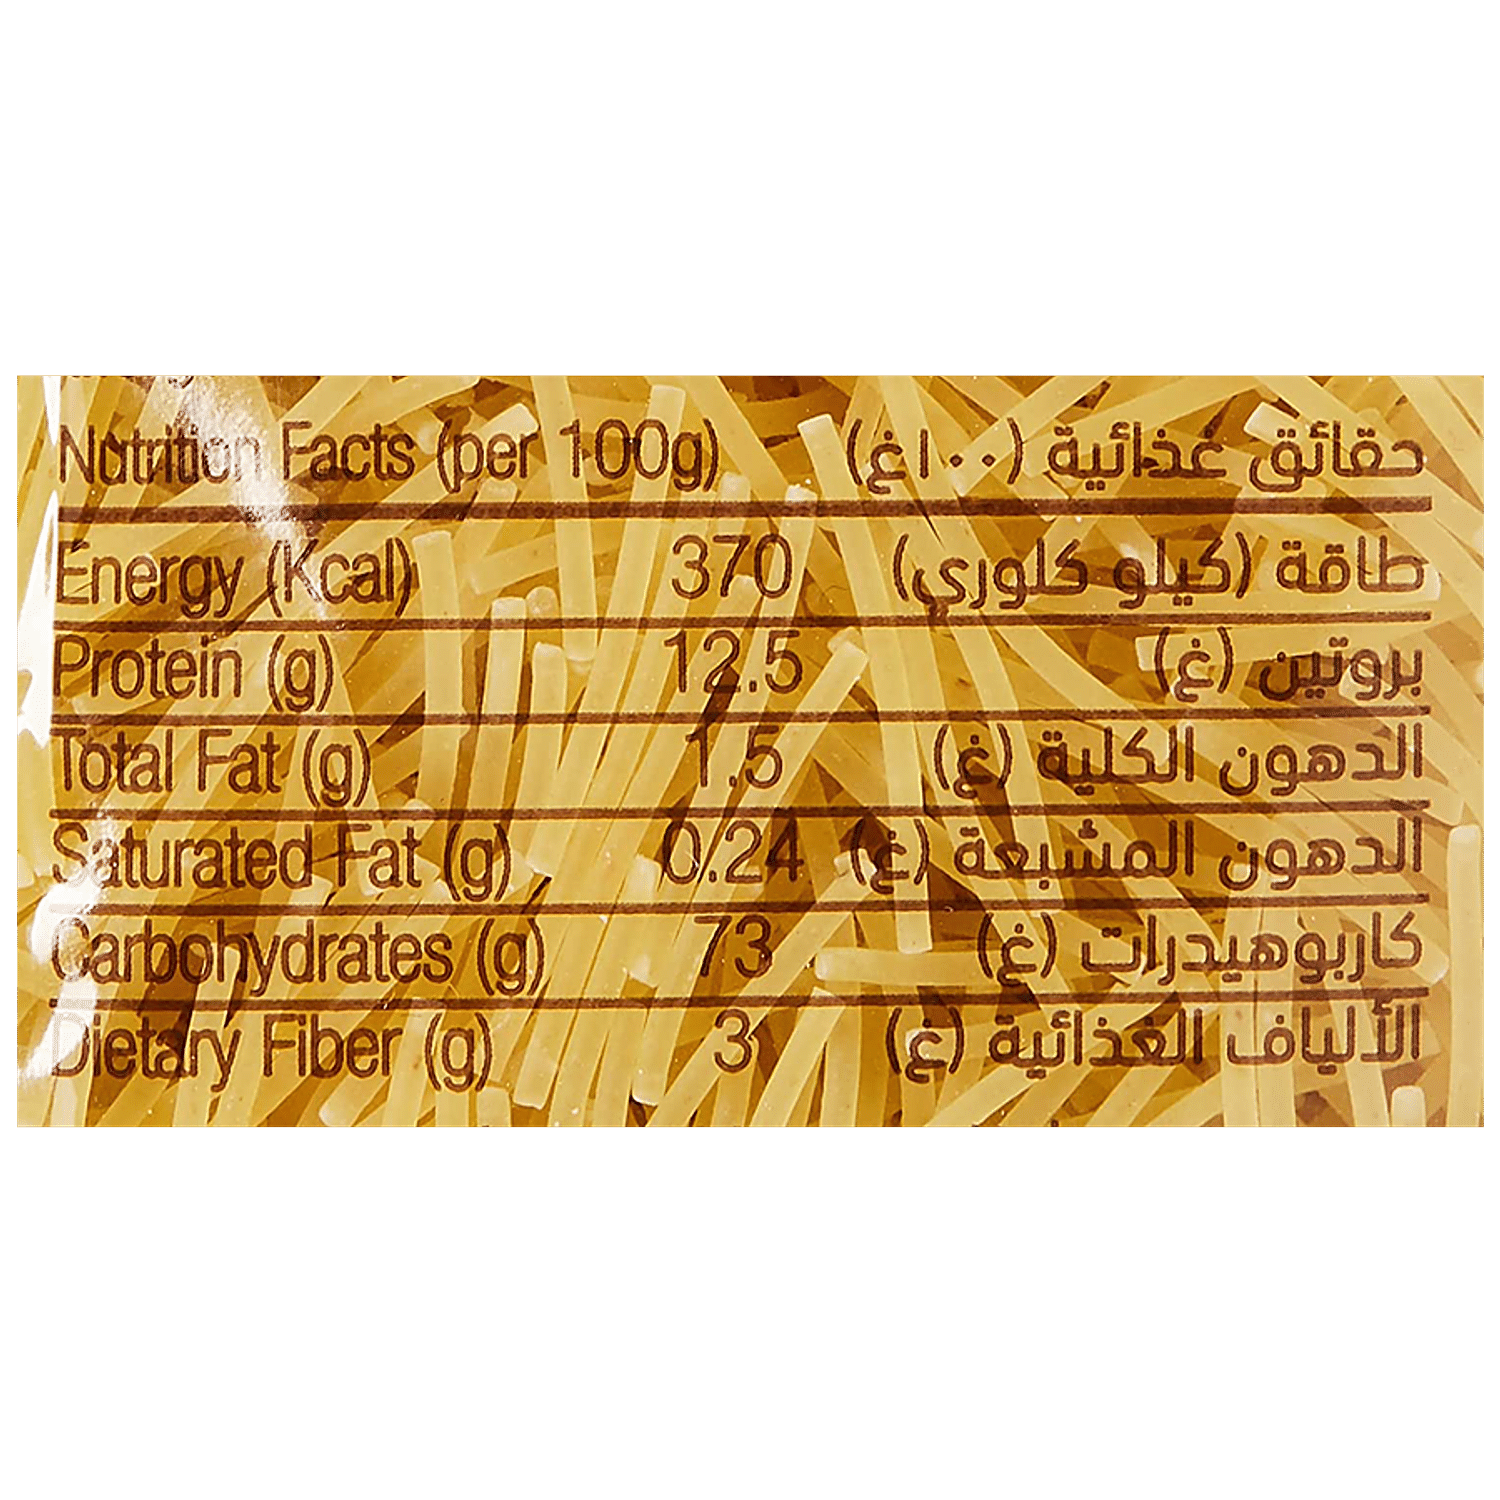 Nutrition Facts (per 100g) حقائق غذائية (١٠٠غ)
Energy (Kcal) 370 طاقة (كيلو كلوري)
Protein (g) 12.5 بروتين (غ)
Total Fat (g) 1.5 الدهون الكلية (غ)
Saturated Fat (g) 0.24 الدهون المشبعة (غ)
Carbohydrates (g) 73 كاربوهيدرات (غ)
Dietary Fiber (g) 3 الألياف الغذائية (غ)